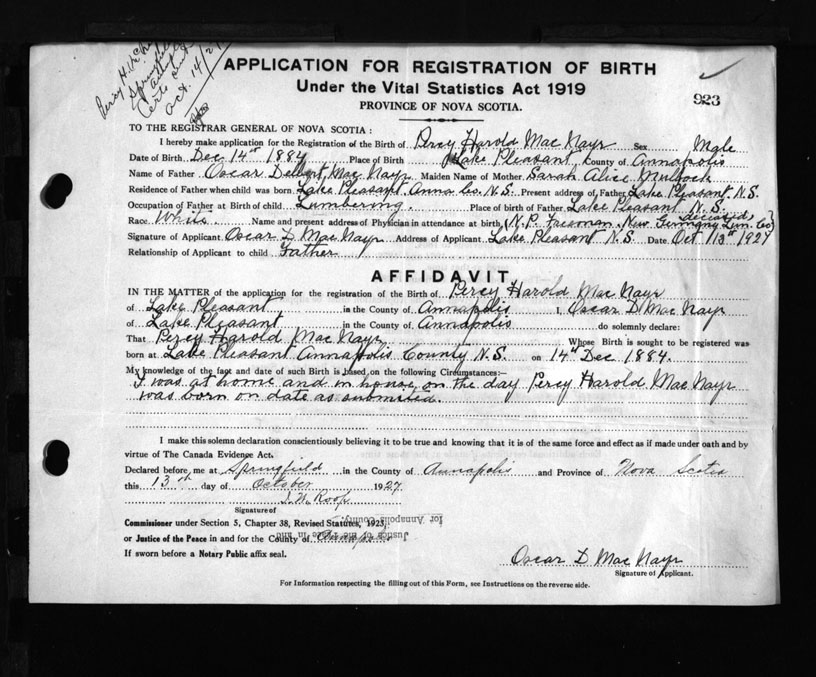 Percy H.
Springfield
Certs sent
Oct. 14/27
APPLICATION FOR REGISTRATION OF BIRTH
Under the Vital Statistics Act 1919
PROVINCE OF NOVA SCOTIA.
923
TO THE REGISTRAR GENERAL OF NOVA SCOTIA:
I hereby make application for the Registration of the Birth of Percy Harold Mac Nayr Sex Male
Date of Birth Dec 14th 1884 Place of Birth Lake Pleasant County of Annapolis
Name of Father Oscar Delbert Mac Nayr Maiden Name of Mother Sarah Alice Mullock
Residence of Father when child was born Lake Pleasant, Anna Co. N.S. Present address of Father Lake Pleasant N.S.
Occupation of Father at Birth of child Lumbering. Place of birth of Father Lake Pleasant N.S.
Race White. Name and present address of Physician in attendance at birth (N.P. Freeman New Germany Lun. Co) deceased,
Signature of Applicant Oscar D Mac Nayr Address of Applicant Lake Pleasant N.S. Date Oct 13th 1927
Relationship of Applicant to child Father
AFFIDAVIT
IN THE MATTER of the application for the registration of the Birth of Percy Harold Mac Nayr
of Lake Pleasant in the County of Annapolis I, Oscar D Mac Nayr
of Lake Pleasant in the County of Annapolis do solemnly declare:
That Percy Harold Mac Nayr Whose Birth is sought to be registered was
born at Lake Pleasant Annapolis County N.S. on 14th Dec 1884.
My knowledge of the fact and date of such Birth is based on the following Circumstances:—
I was at home and in house on the day Percy Harold Mac Nayr
was born on date as submited.
I make this solemn declaration conscientiously believing it to be true and knowing that it is of the same force and effect as if made under oath and by
virtue of The Canada Evidence Act.
Declared before me at Springfield in the County of Annapolis and Province of Nova Scotia
this 13th day of October 1927
J. W. Roop
Signature of
Commissioner under Section 5, Chapter 38, Revised Statutes, 1923,
for Annapolis County.
or Justice of the Peace in and for the County of Annapolis
Justice of the Peace in and
If sworn before a Notary Public affix seal.
Oscar D Mac Nayr
Signature of Applicant.
For Information respecting the filling out of this Form, see Instructions on the reverse side.